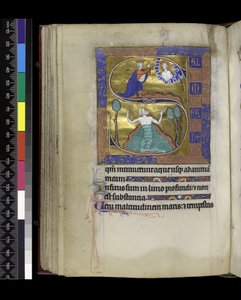 intrauerunt aque usq; ad animā
meam
Infixus sum in limo profundi & non
est substantia
Ueni in altitudinem maris & tempestas